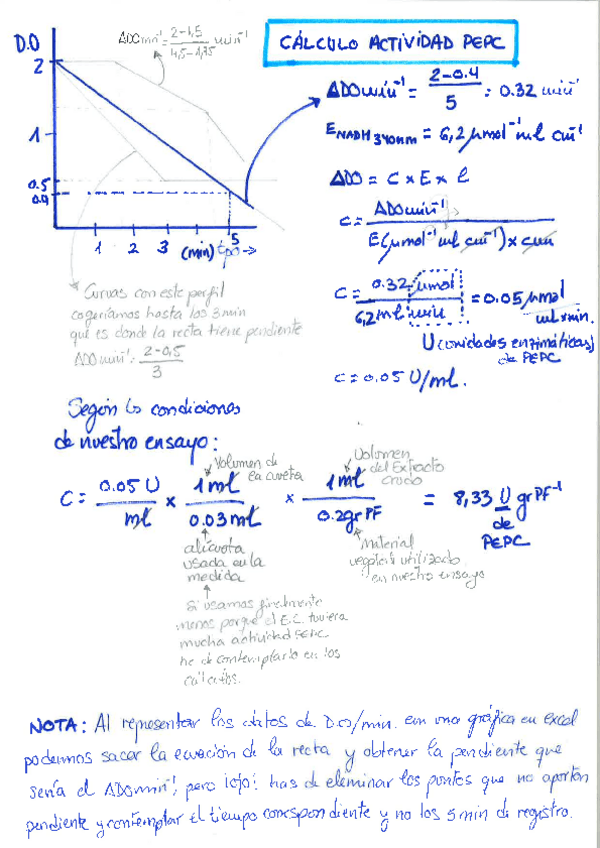 D.O
ΔDOmin⁻¹ = 2-1,5 / 4,5-1,75 min⁻¹
CÁLCULO ACTIVIDAD PEPC
2
1
0.5
0.4
1 2 3 (min) 5 tpo →
ΔDOmin⁻¹ = 2-0.4 / 5 : 0.32 min⁻¹
E NADH 340nm = 6,2 μmol⁻¹ ml cm⁻¹
ΔDO = C x E x l
C = ΔDOmin⁻¹ / E(μmol⁻¹ ml cm⁻¹) x cm
C = 0.32 μmol / 6,2 ml min = 0.05 μmol / ml x min.
U (unidades enzimáticas)
de PEPC
C = 0.05 U/ml.
Curvas con este perfil
cogeríamos hasta los 3 min
que es donde la recta tiene pendiente
ΔDOmin⁻¹ = 2-0,5 / 3
Según las condiciones
de nuestro ensayo:
Volumen de
la cubeta
Volumen
del Extracto
crudo
C = 0.05 U / ml x 1 ml / 0.03 ml x 1 ml / 0.2 gr PF = 8,33 U gr PF⁻¹
de
PEPC
alícuota
usada en la
medida
Material
vegetal utilizado
en nuestro ensayo
Si usamos finalmente
menos porque el E.C. tuviera
mucha actividad PEPC
he de contemplarlo en los
cálculos.
NOTA: Al representar los datos de D.O/min. em una gráfica en excel
podemos sacar la ecuación de la recta y obtener la pendiente que
sería el ΔDOmin⁻¹, pero ¡ojo! has de eliminar los puntos que no aportan
pendiente y contemplar el tiempo correspondiente y no los 5 min de registro.